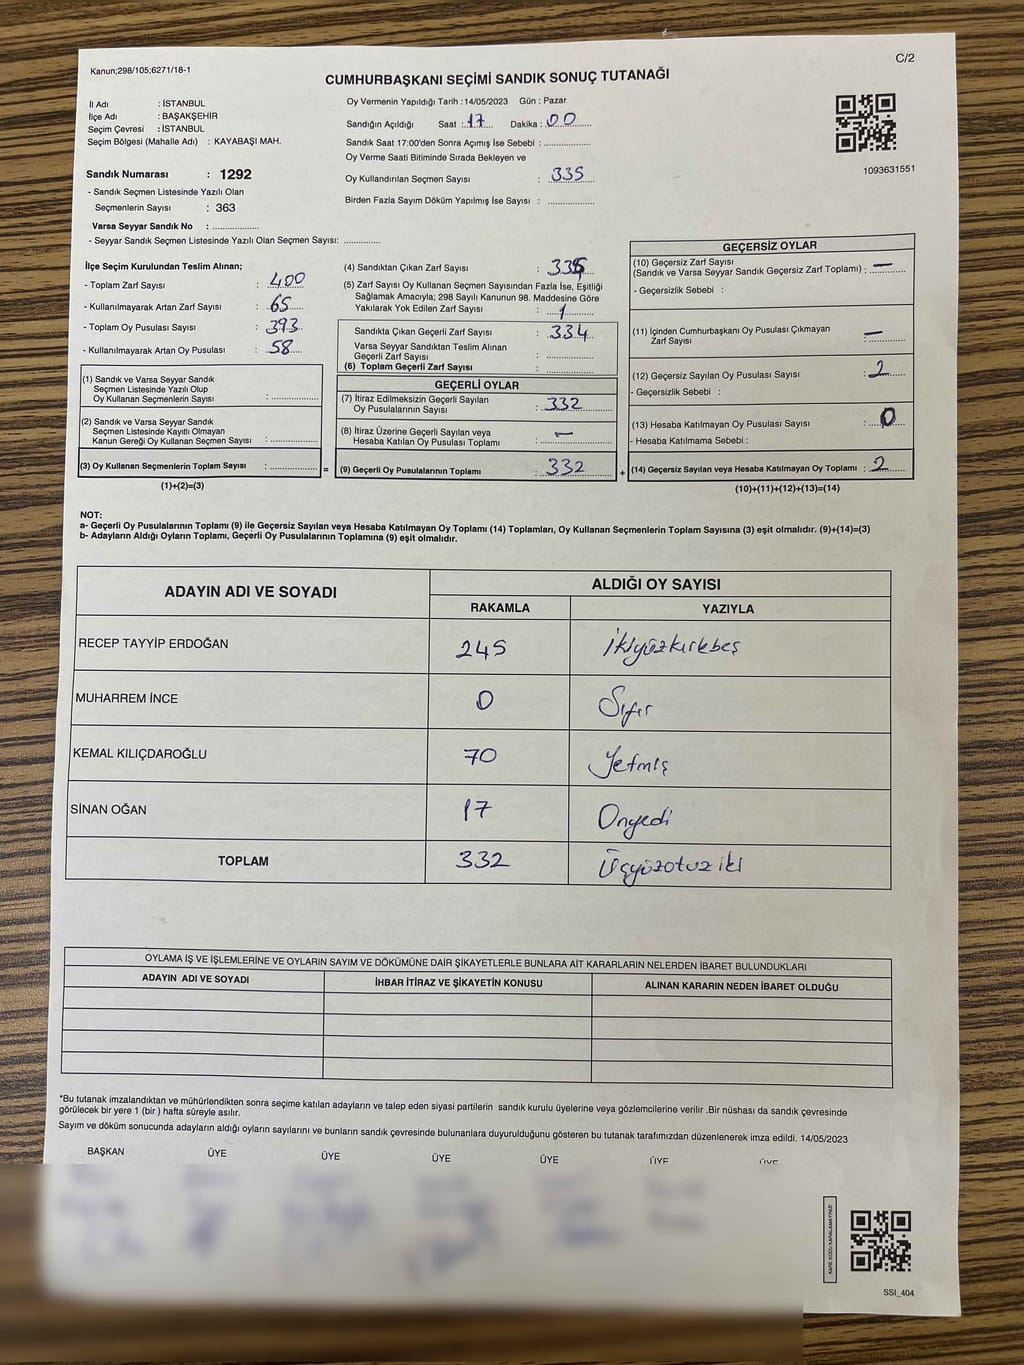 Kanun;298/105;6271/18-1
C/2
CUMHURBAŞKANI SEÇİMİ SANDIK SONUÇ TUTANAĞI
İl Adı : İSTANBUL
İlçe Adı : BAŞAKŞEHİR
Seçim Çevresi : İSTANBUL
Seçim Bölgesi (Mahalle Adı) : KAYABAŞI MAH.
Sandık Numarası : 1292
- Sandık Seçmen Listesinde Yazılı Olan
Seçmenlerin Sayısı : 363
Varsa Seyyar Sandık No : ..............
- Seyyar Sandık Seçmen Listesinde Yazılı Olan Seçmen Sayısı: ............
Oy Vermenin Yapıldığı Tarih : 14/05/2023 Gün : Pazar
Sandığın Açıldığı Saat : 17 Dakika : 00
Sandık Saat 17:00'den Sonra Açımış İse Sebebi : ..............
Oy Verme Saati Bitiminde Sırada Bekleyen ve
Oy Kullandırılan Seçmen Sayısı : 335
Birden Fazla Sayım Döküm Yapılmış İse Sayısı : ..............
1093631551
İlçe Seçim Kurulundan Teslim Alınan;
- Toplam Zarf Sayısı : 400
- Kullanılmayarak Artan Zarf Sayısı : 65
- Toplam Oy Pusulası Sayısı : 393
- Kullanılmayarak Artan Oy Pusulası : 58
(1) Sandık ve Varsa Seyyar Sandık
Seçmen Listesinde Yazılı Olup
Oy Kullanan Seçmenlerin Sayısı : ..............
(2) Sandık ve Varsa Seyyar Sandık
Seçmen Listesinde Kayıtlı Olmayan
Kanun Gereği Oy Kullanan Seçmen Sayısı : ..............
(3) Oy Kullanan Seçmenlerin Toplam Sayısı : .............. =
(1)+(2)=(3)
(4) Sandıktan Çıkan Zarf Sayısı : 335
(5) Zarf Sayısı Oy Kullanan Seçmen Sayısından Fazla İse, Eşitliği
Sağlamak Amacıyla; 298 Sayılı Kanunun 98. Maddesine Göre
Yakılarak Yok Edilen Zarf Sayısı : 1
Sandıkta Çıkan Geçerli Zarf Sayısı : 334
Varsa Seyyar Sandıktan Teslim Alınan
Geçerli Zarf Sayısı : ..............
(6) Toplam Geçerli Zarf Sayısı : ..............
GEÇERLİ OYLAR
(7) İtiraz Edilmeksizin Geçerli Sayılan
Oy Pusulalarının Sayısı : 332
(8) İtiraz Üzerine Geçerli Sayılan veya
Hesaba Katılan Oy Pusulası Toplamı : –
(9) Geçerli Oy Pusulalarının Toplamı : 332 +
GEÇERSİZ OYLAR
(10) Geçersiz Zarf Sayısı
(Sandık ve Varsa Seyyar Sandık Geçersiz Zarf Toplamı) : –
- Geçersizlik Sebebi :
(11) İçinden Cumhurbaşkanı Oy Pusulası Çıkmayan
Zarf Sayısı : –
(12) Geçersiz Sayılan Oy Pusulası Sayısı : 2
- Geçersizlik Sebebi :
(13) Hesaba Katılmayan Oy Pusulası Sayısı : 0
- Hesaba Katılmama Sebebi :
(14) Geçersiz Sayılan veya Hesaba Katılmayan Oy Toplamı : 2
(10)+(11)+(12)+(13)=(14)
NOT:
a- Geçerli Oy Pusulalarının Toplamı (9) ile Geçersiz Sayılan veya Hesaba Katılmayan Oy Toplamı (14) Toplamları, Oy Kullanan Seçmenlerin Toplam Sayısına (3) eşit olmalıdır. (9)+(14)=(3)
b- Adayların Aldığı Oyların Toplamı, Geçerli Oy Pusulalarının Toplamına (9) eşit olmalıdır.
ADAYIN ADI VE SOYADI
ALDIĞI OY SAYISI
RAKAMLA YAZIYLA
RECEP TAYYİP ERDOĞAN 245 İkiyüzkırkbeş
MUHARREM İNCE 0 Sıfır
KEMAL KILIÇDAROĞLU 70 Yetmiş
SİNAN OĞAN 17 Onyedi
TOPLAM 332 Üçyüzotuziki
OYLAMA İŞ VE İŞLEMLERİNE VE OYLARIN SAYIM VE DÖKÜMÜNE DAİR ŞİKAYETLERLE BUNLARA AİT KARARLARIN NELERDEN İBARET BULUNDUKLARI
ADAYIN ADI VE SOYADI İHBAR İTİRAZ VE ŞİKAYETİN KONUSU ALINAN KARARIN NEDEN İBARET OLDUĞU
*Bu tutanak imzalandıktan ve mühürlendikten sonra seçime katılan adayların ve talep eden siyasi partilerin sandık kurulu üyelerine veya gözlemcilerine verilir .Bir nüshası da sandık çevresinde
görülecek bir yere 1 (bir ) hafta süreyle asılır.
Sayım ve döküm sonucunda adayların aldığı oyların sayılarını ve bunların sandık çevresinde bulunanlara duyurulduğunu gösteren bu tutanak tarafımızdan düzenlenerek imza edildi. 14/05/2023
BAŞKAN ÜYE ÜYE ÜYE ÜYE ÜYE ÜYE
KARE KODU KARALAMAYINIZ!
SSI_404